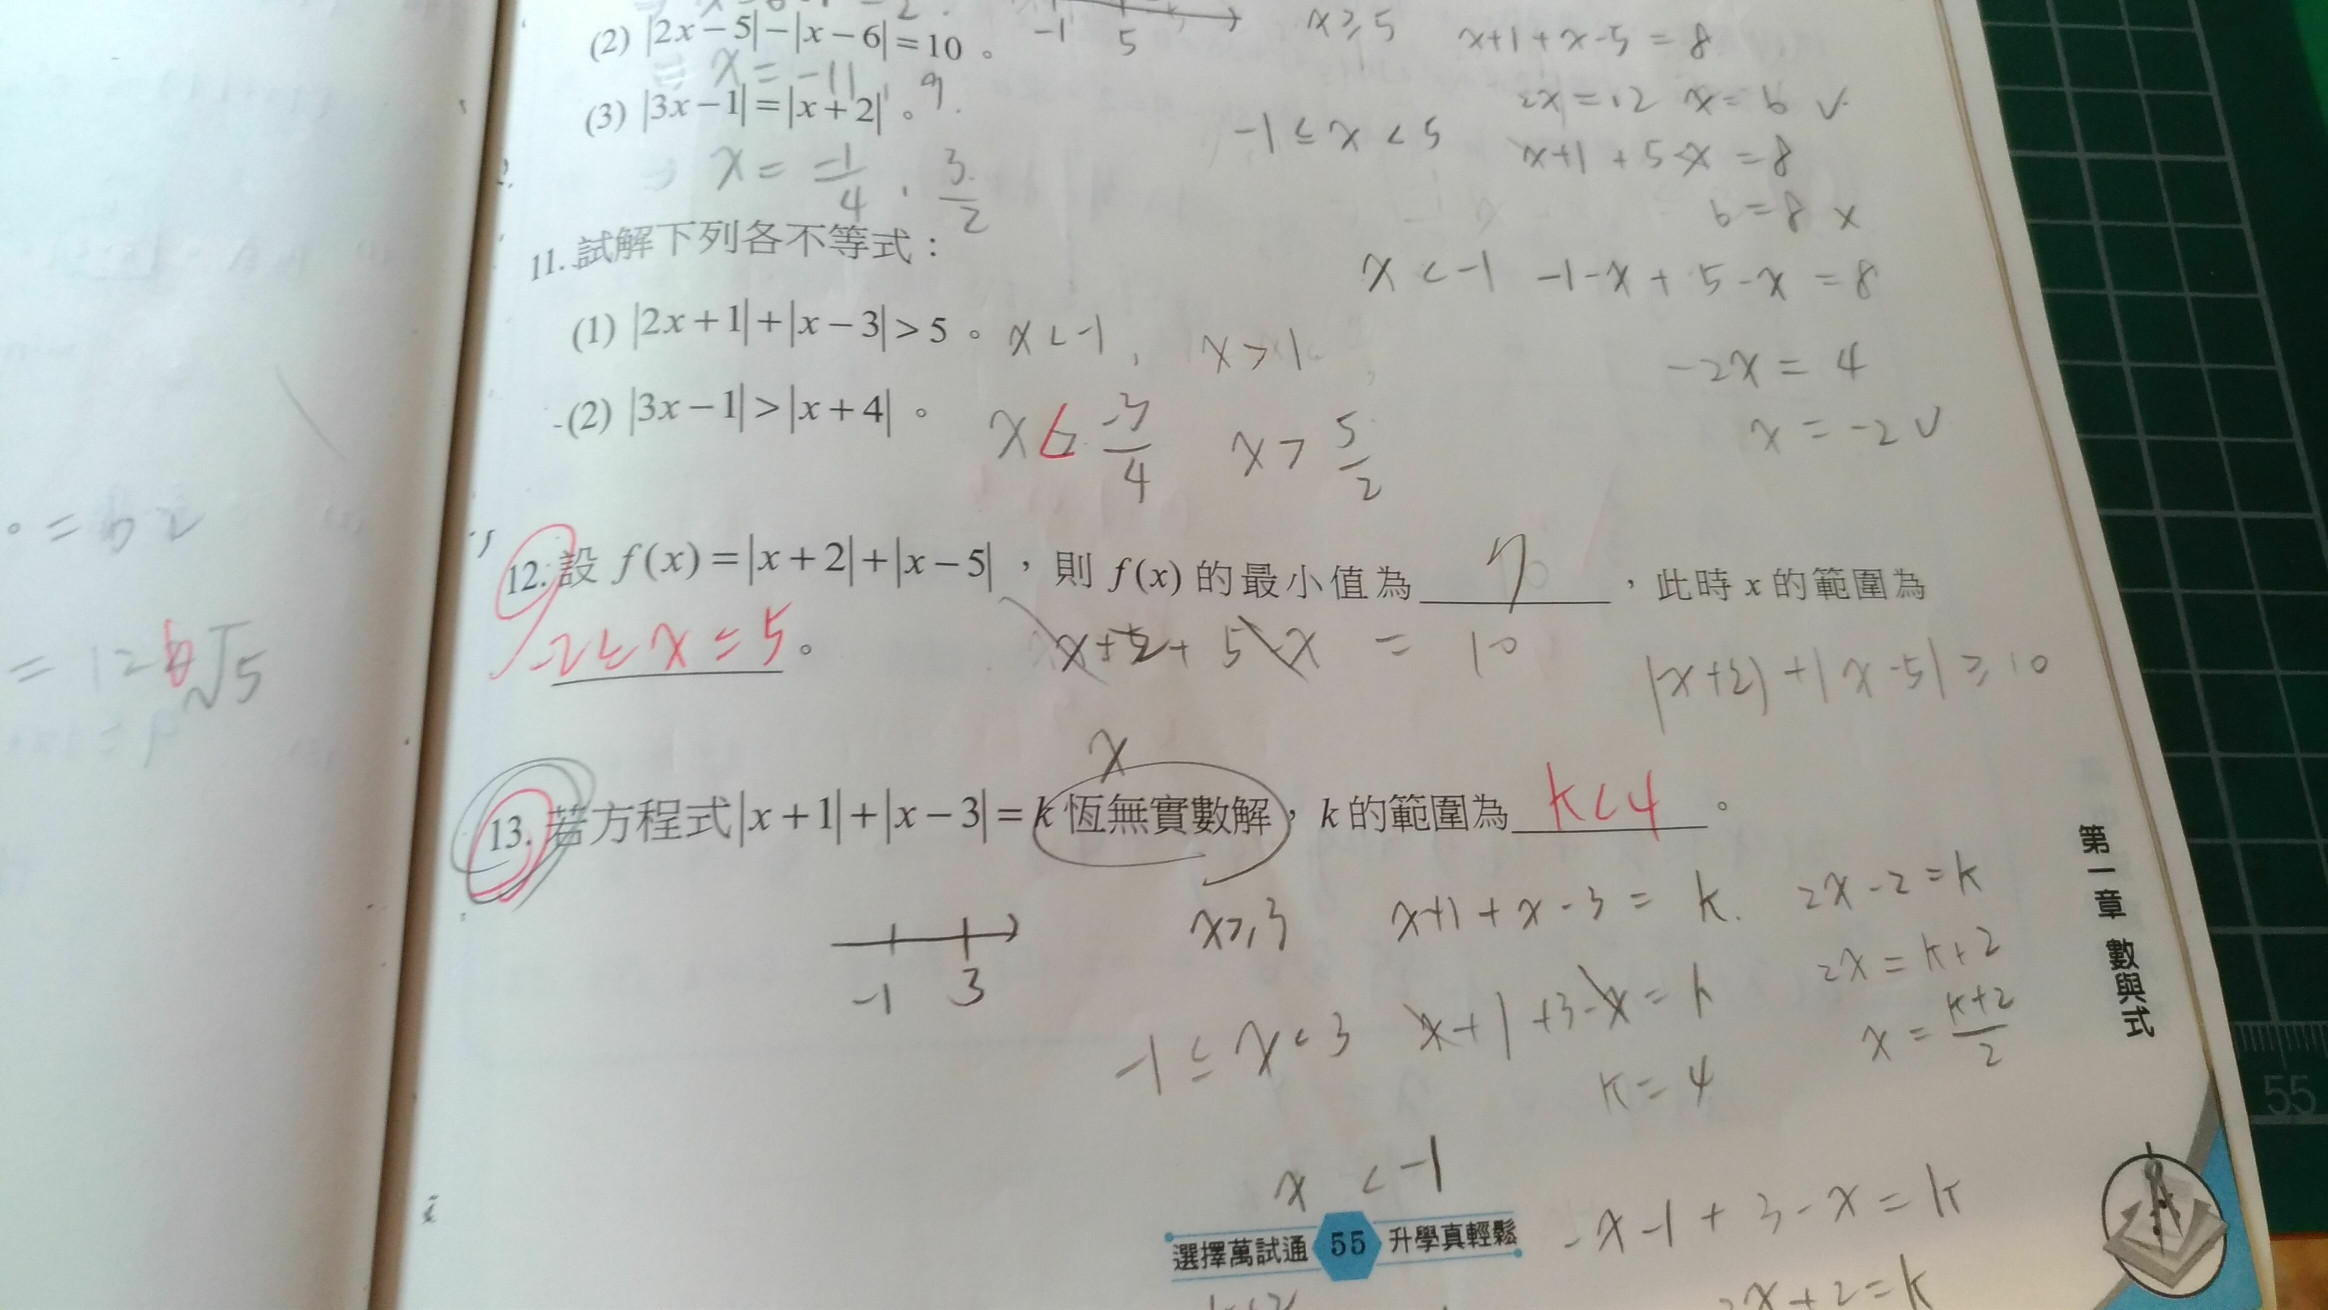 (2) |2x-5|-|x-6|=10。 -1 5 x≥5 x+1+x-5=8
x=-11, 9.
2x=12 x=6 ✓
(3) |3x-1|=|x+2|。
-1≤x<5 x+1+5-x=8
x=-1/4, 3/2
6=8 x
11.試解下列各不等式:
x<-1 -1-x+5-x=8
(1) |2x+1|+|x-3|>5。 x<-1, x>1
-2x=4
(2) |3x-1|>|x+4|。 x< -3/4 x> 5/2
x=-2 ✓
12.設 f(x)=|x+2|+|x-5|,則 f(x) 的最小值為 7,此時 x 的範圍為
-2≤x≤5。 x+2+5-x = 10
|x+2|+|x-5|≥10
x
13.若方程式|x+1|+|x-3|=k 恆無實數解,k 的範圍為 k<4。
-1 3
x≥3 x+1+x-3=k. 2x-2=k
2x=k+2
x=k+2/2
-1≤x<3 x+1+3-x=k
k=4
x<-1
-x-1+3-x=k
-2x+2=k
=12-6√5
第一章 數與式
選擇萬試通 55 升學真輕鬆
55